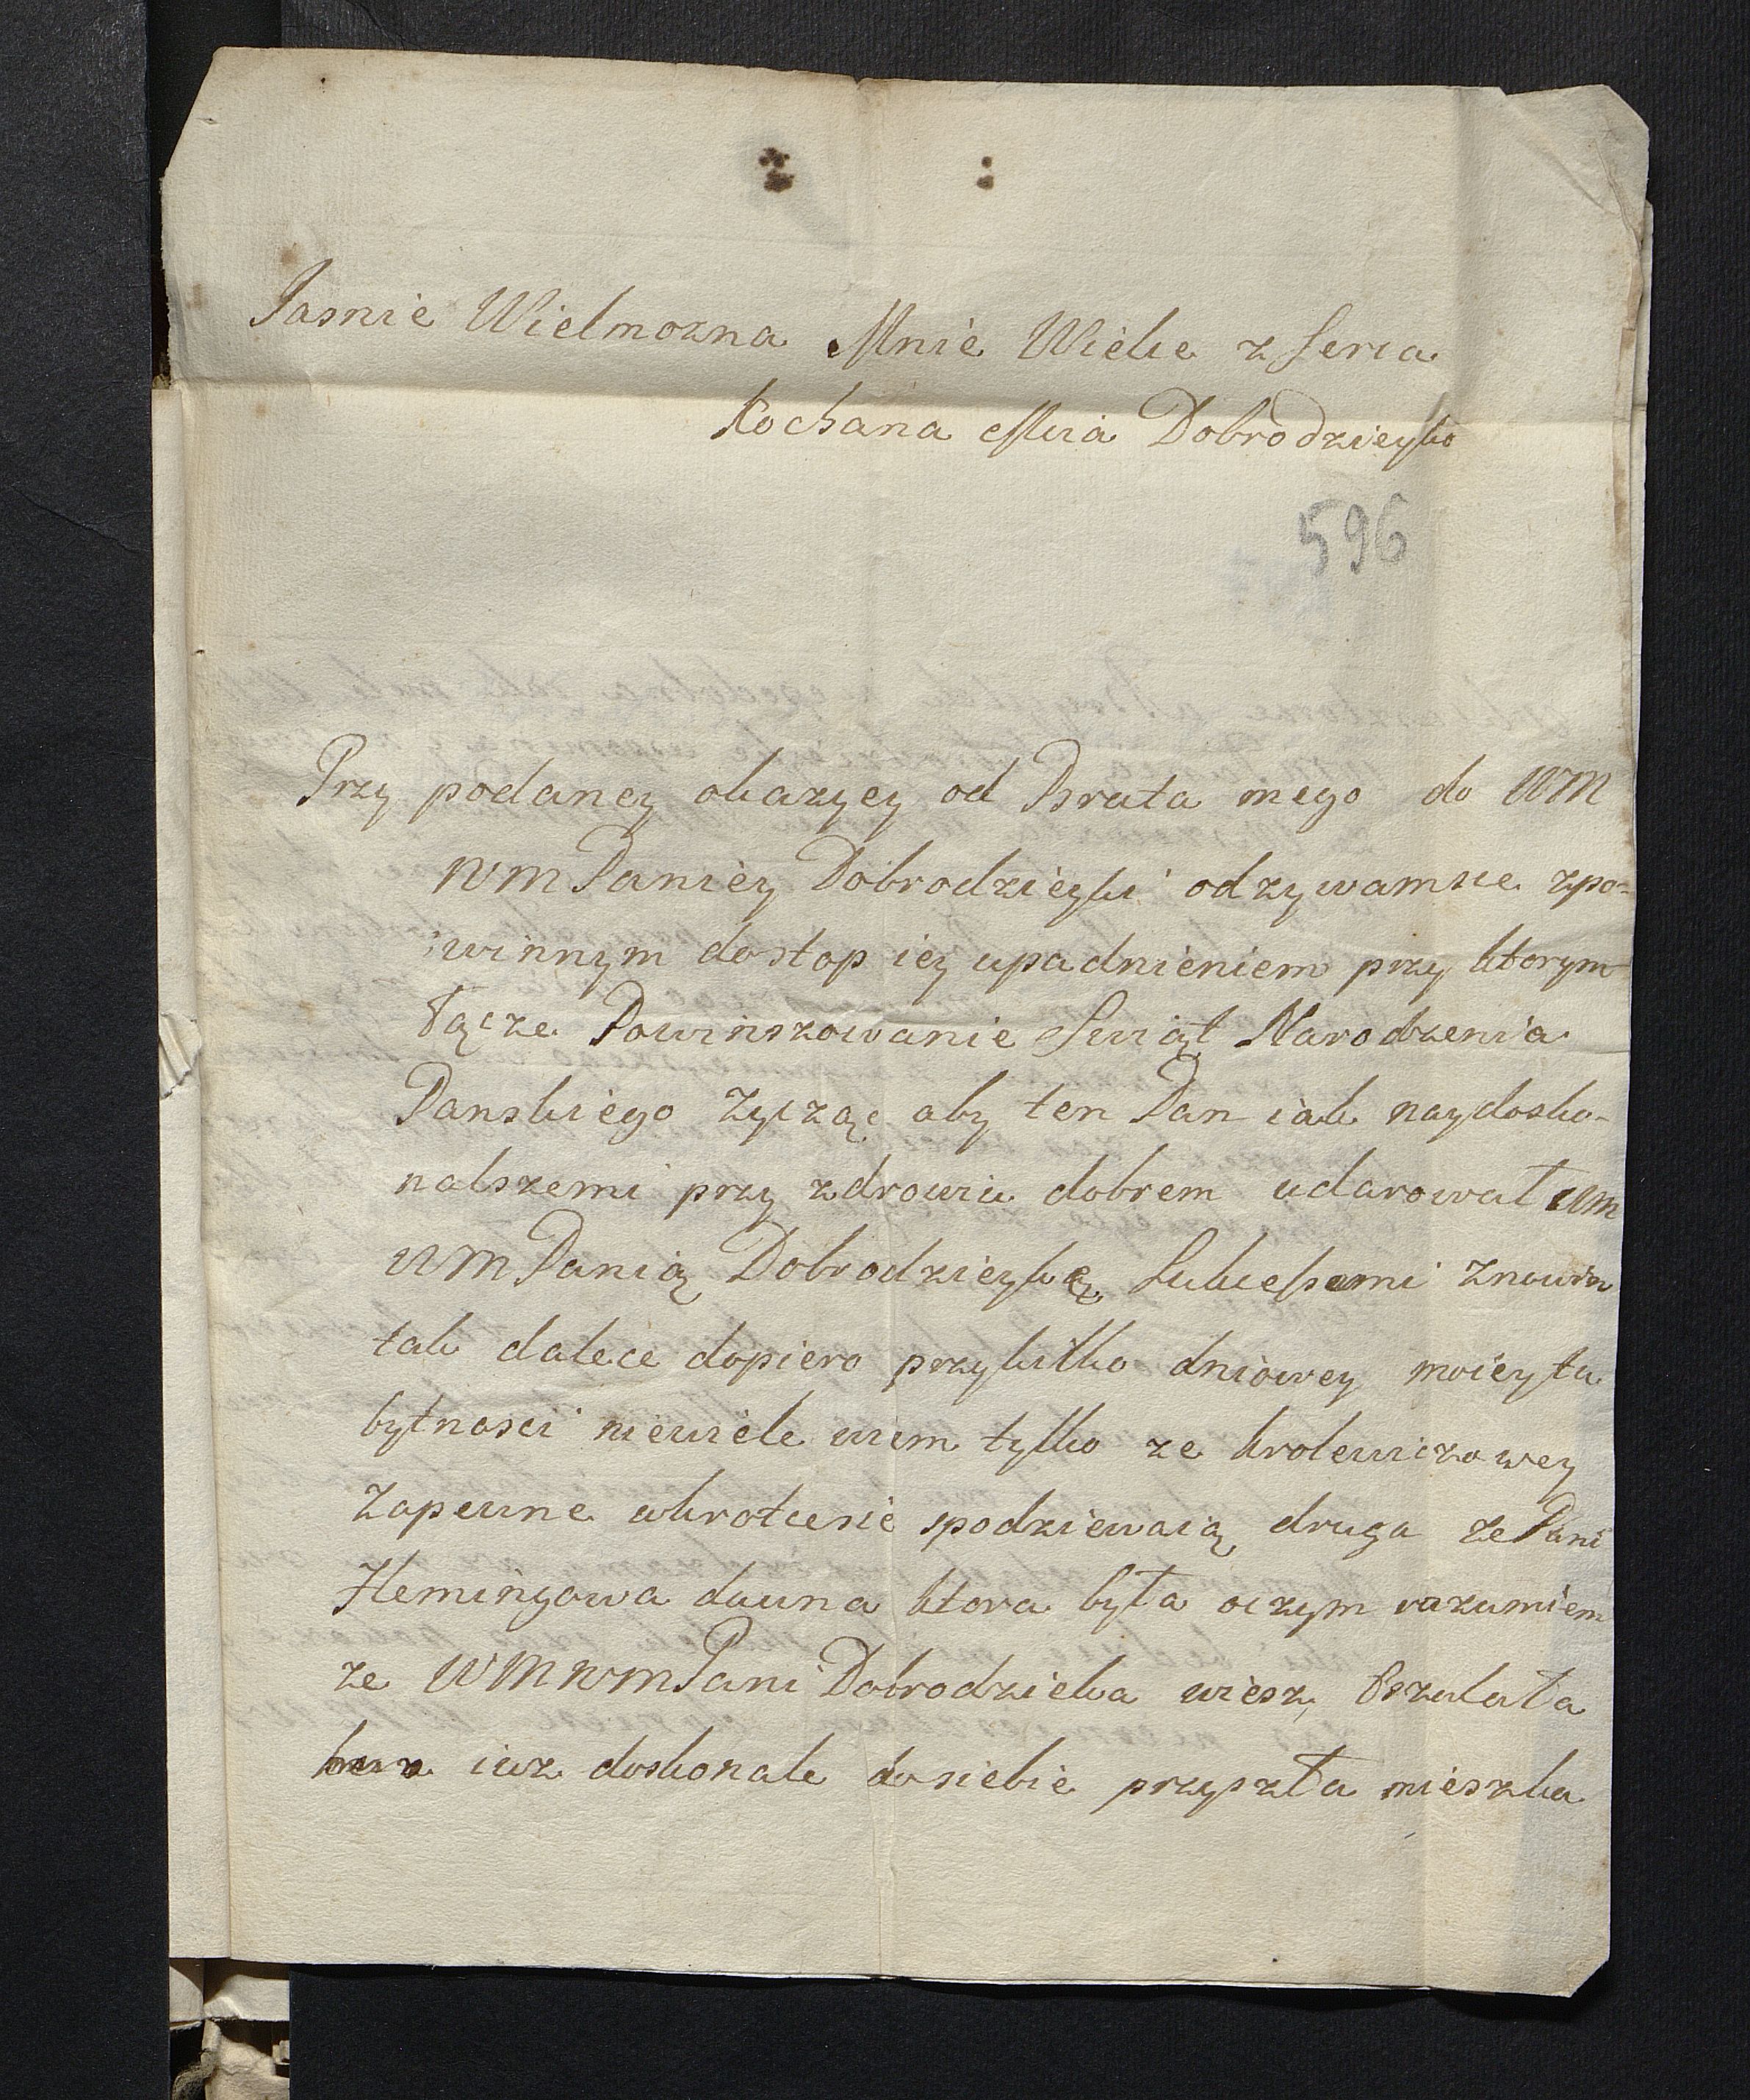 Jasnie Wielmozna Mnie Wielce z serca
Kochana Mcia Dobrodzieyko
596
Przy podaney okazyey od Brata mego do WM
WM Paniey Dobrodzieyki odzywamsie zpo-
winnym dostop iey upadnieniem przy ktorym
Łącze Powinszowanie Swiąt Narodzenia
Panskiego zycząc aby ten Pan iak naydosko-
nalszemi przy zdrowiu dobrem udarował WM
WM Panią Dobrodzieykę Sukcesami znowin
tak dalece dopiero przykilko dniowey moiey tu
bytnosci niewiele wiem tylko ze krolewiczowey
zapewne wkrotcesie spodziewaią druga ze Pani
Flemingowa dawna ktora była oczym rozumiem
ze WMWM Pani Dobrodzieka wiesz,
iuz doskonale dosiebie przyszła mieszka